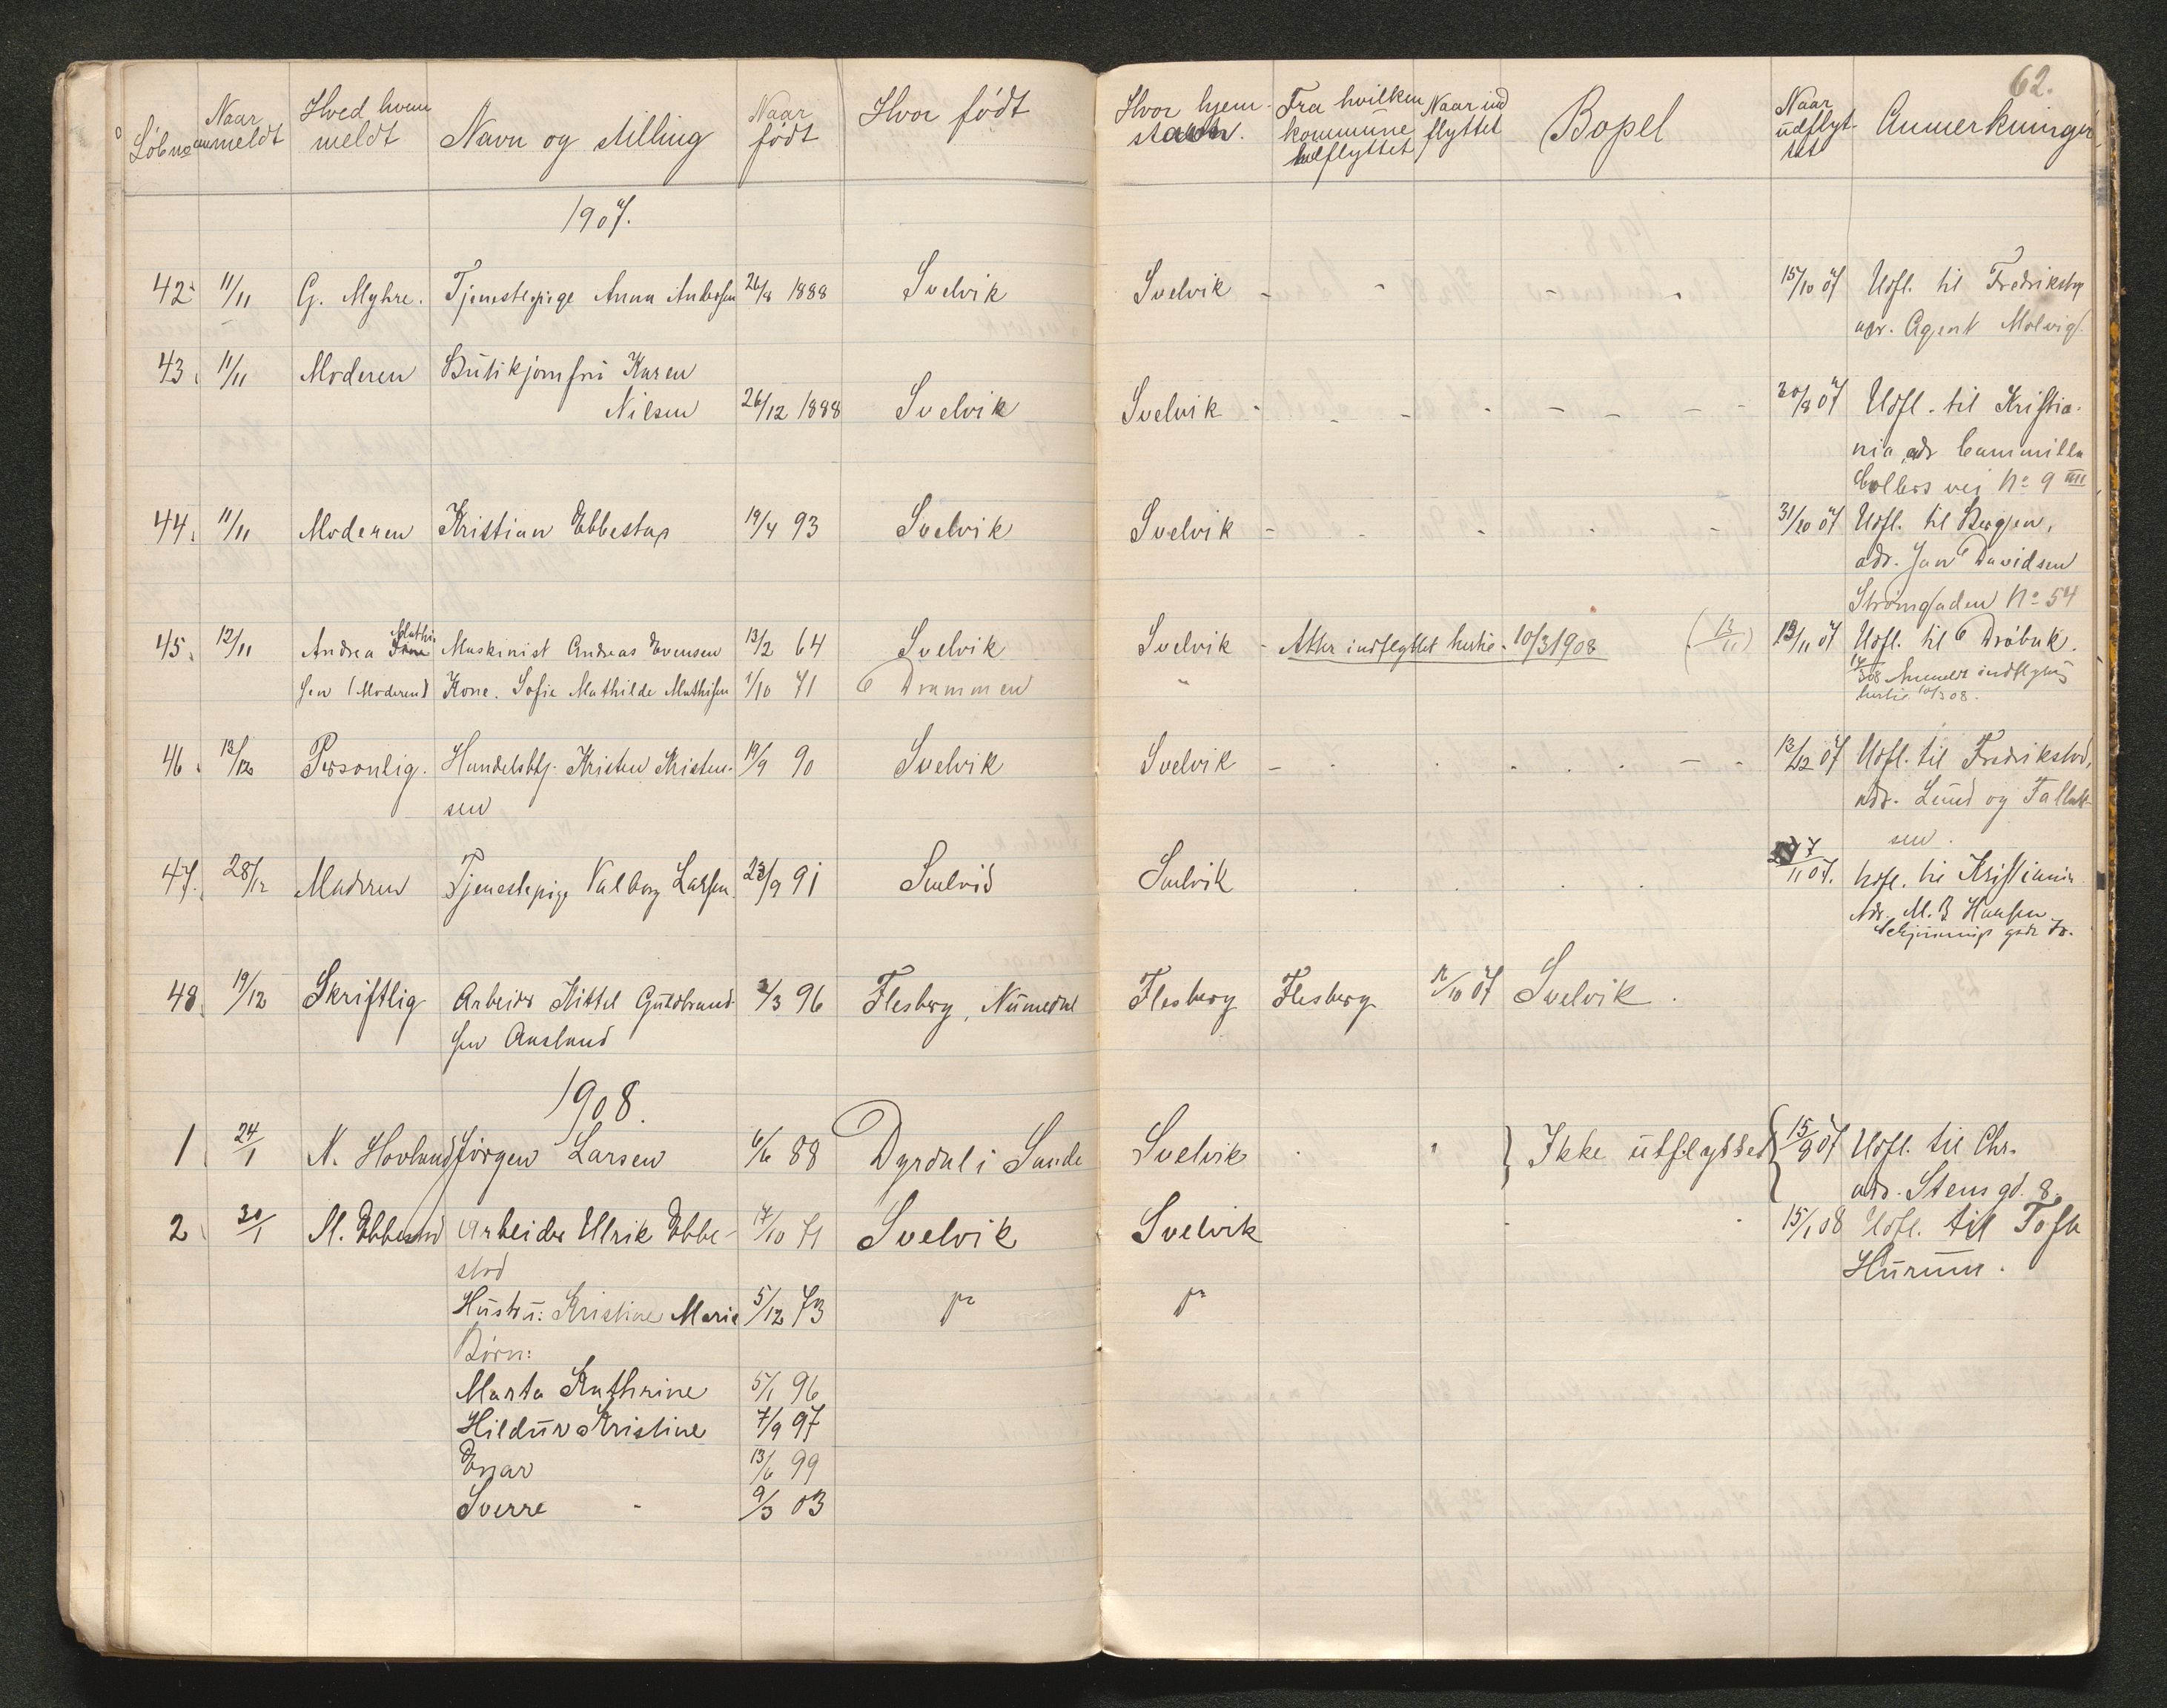 62.
Löbno Naar anmeldt Hved hvem meldt Navn og stilling Naar født Hvor født Hvor hjem- Fra hvilken kommune Naar ind flyttet Bopel Naar udflyt- tet Anmerkninger
1907.
42. 11/11 G. Myhre. Tjenestepige Anna Andersen 26/8 1888 Svelvik Svelvik - - - - 15/10 07 Udfl. til
adr. Agent Molvig
43. 11/11 Moderen Butikjomfru Karen
Nilsen 26/12 1888 Svelvik Svelvik - - - - - - - - 20/8 07 Udfl. til Kristia-
nia, adr Cammilla
Collets vei No 9 III
44. 11/11 Moderen Kristian Ebbestap 19/4 93 Svelvik Svelvik - - - - - 31/10 07 Udfl. til Bergen,
adr. Jan Davidsen
Strømgaden No 54
45. 12/11 Andrea Mathi- Maskinist Andreas Evensen 13/2 64 Svelvik Svelvik - Atter indflyttet hertil 10/3 1908 (12/11) 12/11 07 Udfl. til Drøbak.
sen (Moderen) Kone. Sofie Mathilde Mathisen 1/10 71 Drammen " Anmeldt indflyttet
hertil 10/3 08.
46. 12/12 Personlig. Handelsbtj. Kristen Kristen- 19/9 90 Svelvik Svelvik - - - - - - - 12/12 07 Udfl. til Fredrikstad,
sen adr. Lund og Fallak-
sen.
47. 28/12 Moderen Tjenestepige Valborg Larsen. 23/9 91 Svelvik Svelvik - - - /11 07. Udfl. til Kristiania
Adr. M. B Hansen
48. 19/12 Skriftlig Arbeider Kittel Guldbrand- 2/3 96 Flesberg, Numedal Flesberg Flesberg /10 07 Svelvik.
sen Aasland
1908.
1. 24/1 N. Hovland Jørgen Larsen 6/6 88 Dyrdal i Sande Svelvik " } Ikke utflyttet { 15/9 07 Udfl. til Chr.
adr. Stensgd. 8.
2. 30/1 M. Ebbestad Arbeider Ulrik Ebbe- 17/10 71 Svelvik Svelvik - - 15/1 08 Udfl. til Tofte
stad Hurum.
Hustru: Kristine Marie 5/12 73
Börn:
Marta Kathrine 5/1 96
Hildur Kristine 7/9 97
Enar 13/6 99
Sverre - 9/3 03